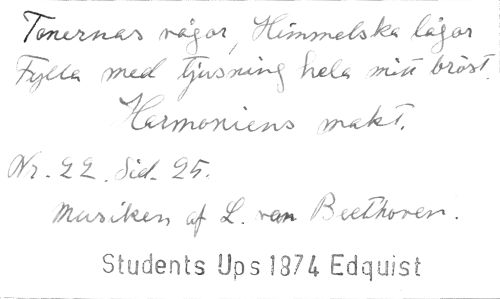 Tonernas vågor, Himmelska lågor
Fylla med tjusning hela mitt bröst.
Harmoniens makt.
Nr. 22. Sid. 25.
Musiken af L. van Beethoven.
Students Ups 1874 Edquist